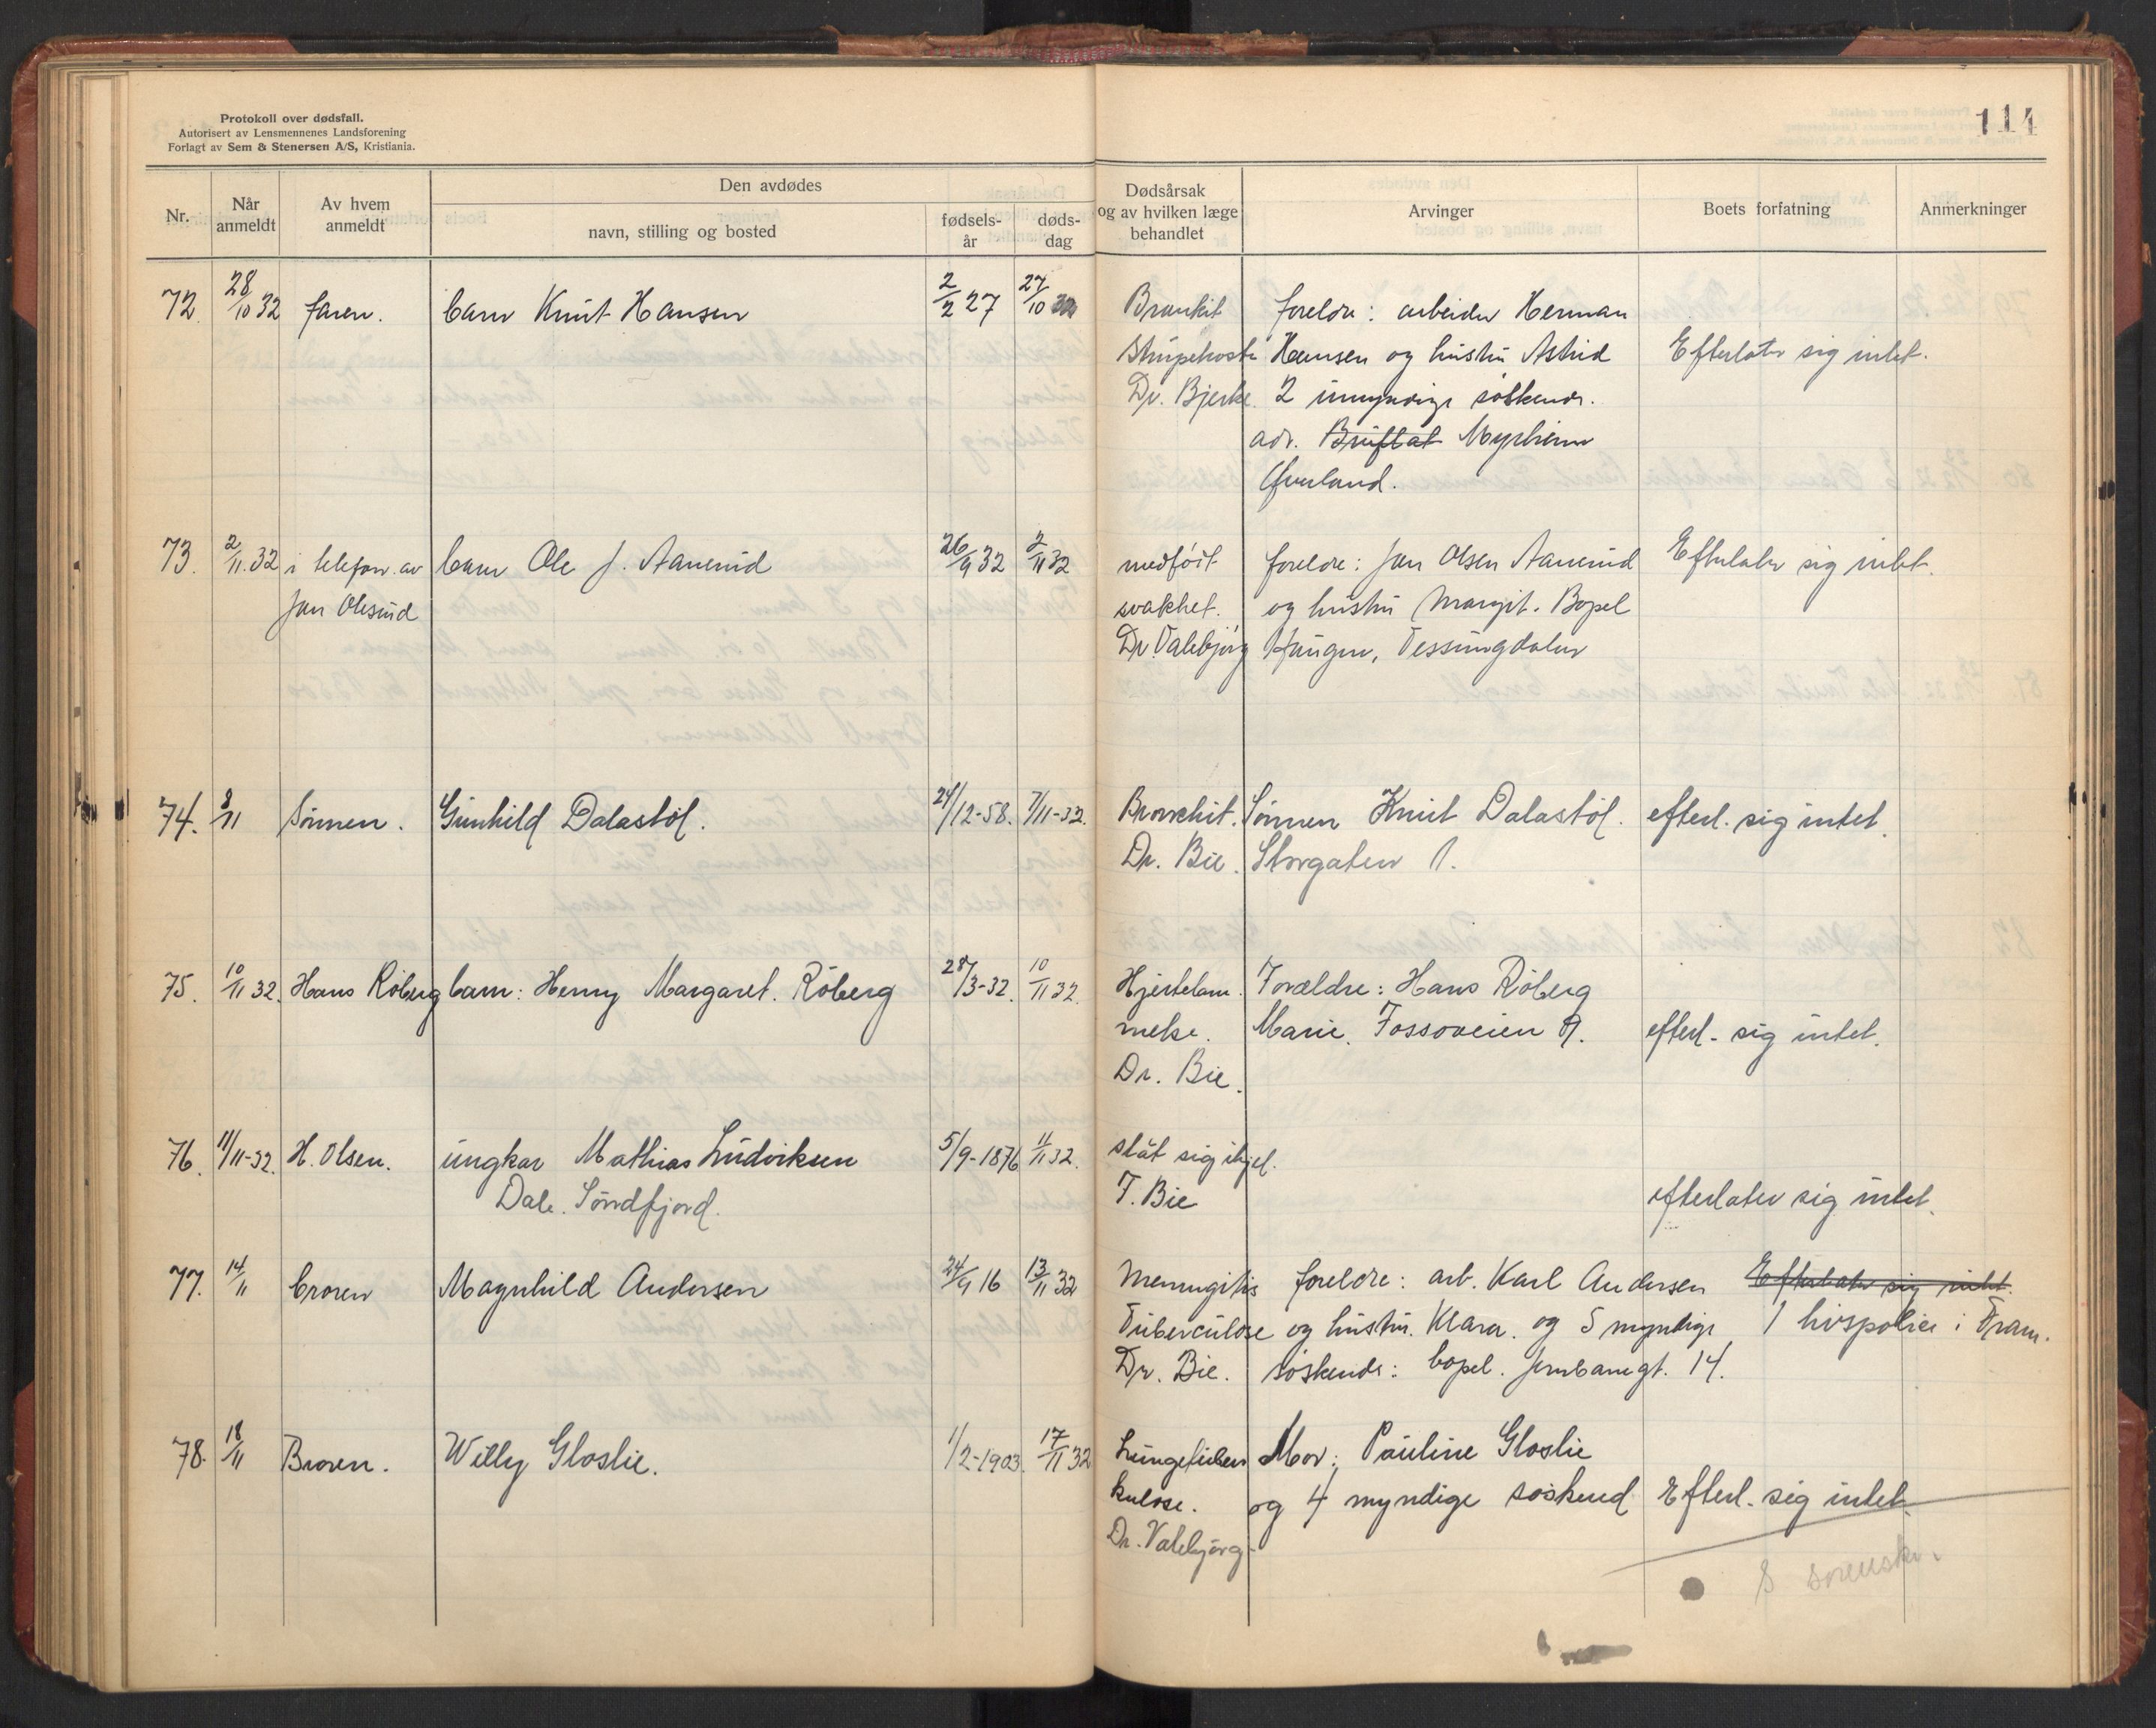 Protokoll over dødsfall.
Autorisert av Lensmennenes Landsforening
Forlagt av Sem & Stenersen A/S, Kristiania.
114
Nr.
Når anmeldt
Av hvem anmeldt
Den avdødes
navn, stilling og bosted
fødsels-år
døds-dag
Dødsårsak og av hvilken læge behandlet
Arvinger
Boets forfatning
Anmerkninger
72. 28/10 32 faren. barn Knut Hansen 2/2 27 27/10 32 Bronkit foreldre: arbeider Herman
Strupehoste Hansen og hustru Astrid Efterlater sig intet.
Dr. Bjerke. 2 umyndige søskende.
adr. Bruflat Myrheim
Øverland.
73. 2/11.32 i telefon av barn Ole J. Aanerud 26/9 32 2/11 32 medfødt foreldre: Jan Olsen Aanerud Efterlater sig intet.
Jan Olesrud svakhet. og hustru Margit. Bopel
Dr. Valebjørg Haugen, Tessungdalen
74. 8/11 Sønnen. Gunhild Dalastøl. 24/12-58. 7/11-32. Bronchit. Sønnen Knut Dalastøl. efterl. sig intet.
Dr. Bie. Storgaten 1.
75. 10/11 32. Hans Röberg barn: Henny Margaret. Röberg 28/3-32. 10/11 32. Hjertelam Forældre: Hans Röberg
melse. Marie. Fossoveien 9. efterl. sig intet.
Dr. Bie.
76. 11/11-32. H. Olsen. ungkar Mathias Ludviksen 5/9-1876 11/11 32. slåt sig ihjel.
Dale. Søndfjord. T. Bie efterlater sig intet.
77. 14/11 broren Magnhild Andersen 24/9 16 13/11 32 Menengitis foreldre: arb. Karl Andersen Efterlater sig intet.
Tuberculose og hustru. Klara. og 5 myndige 1 livspolice i Fram.
Dr. Bie. søskende: bopel. Jernbanegt. 14.
78. 18/11 Broren. Willy Gloslie. 1/2-1903. 17/11 32 Lungetuber Mor: Pauline Gloslie
kulose. og 4 myndige søskend Efterl. sig intet.
Dr. Valebjørg.